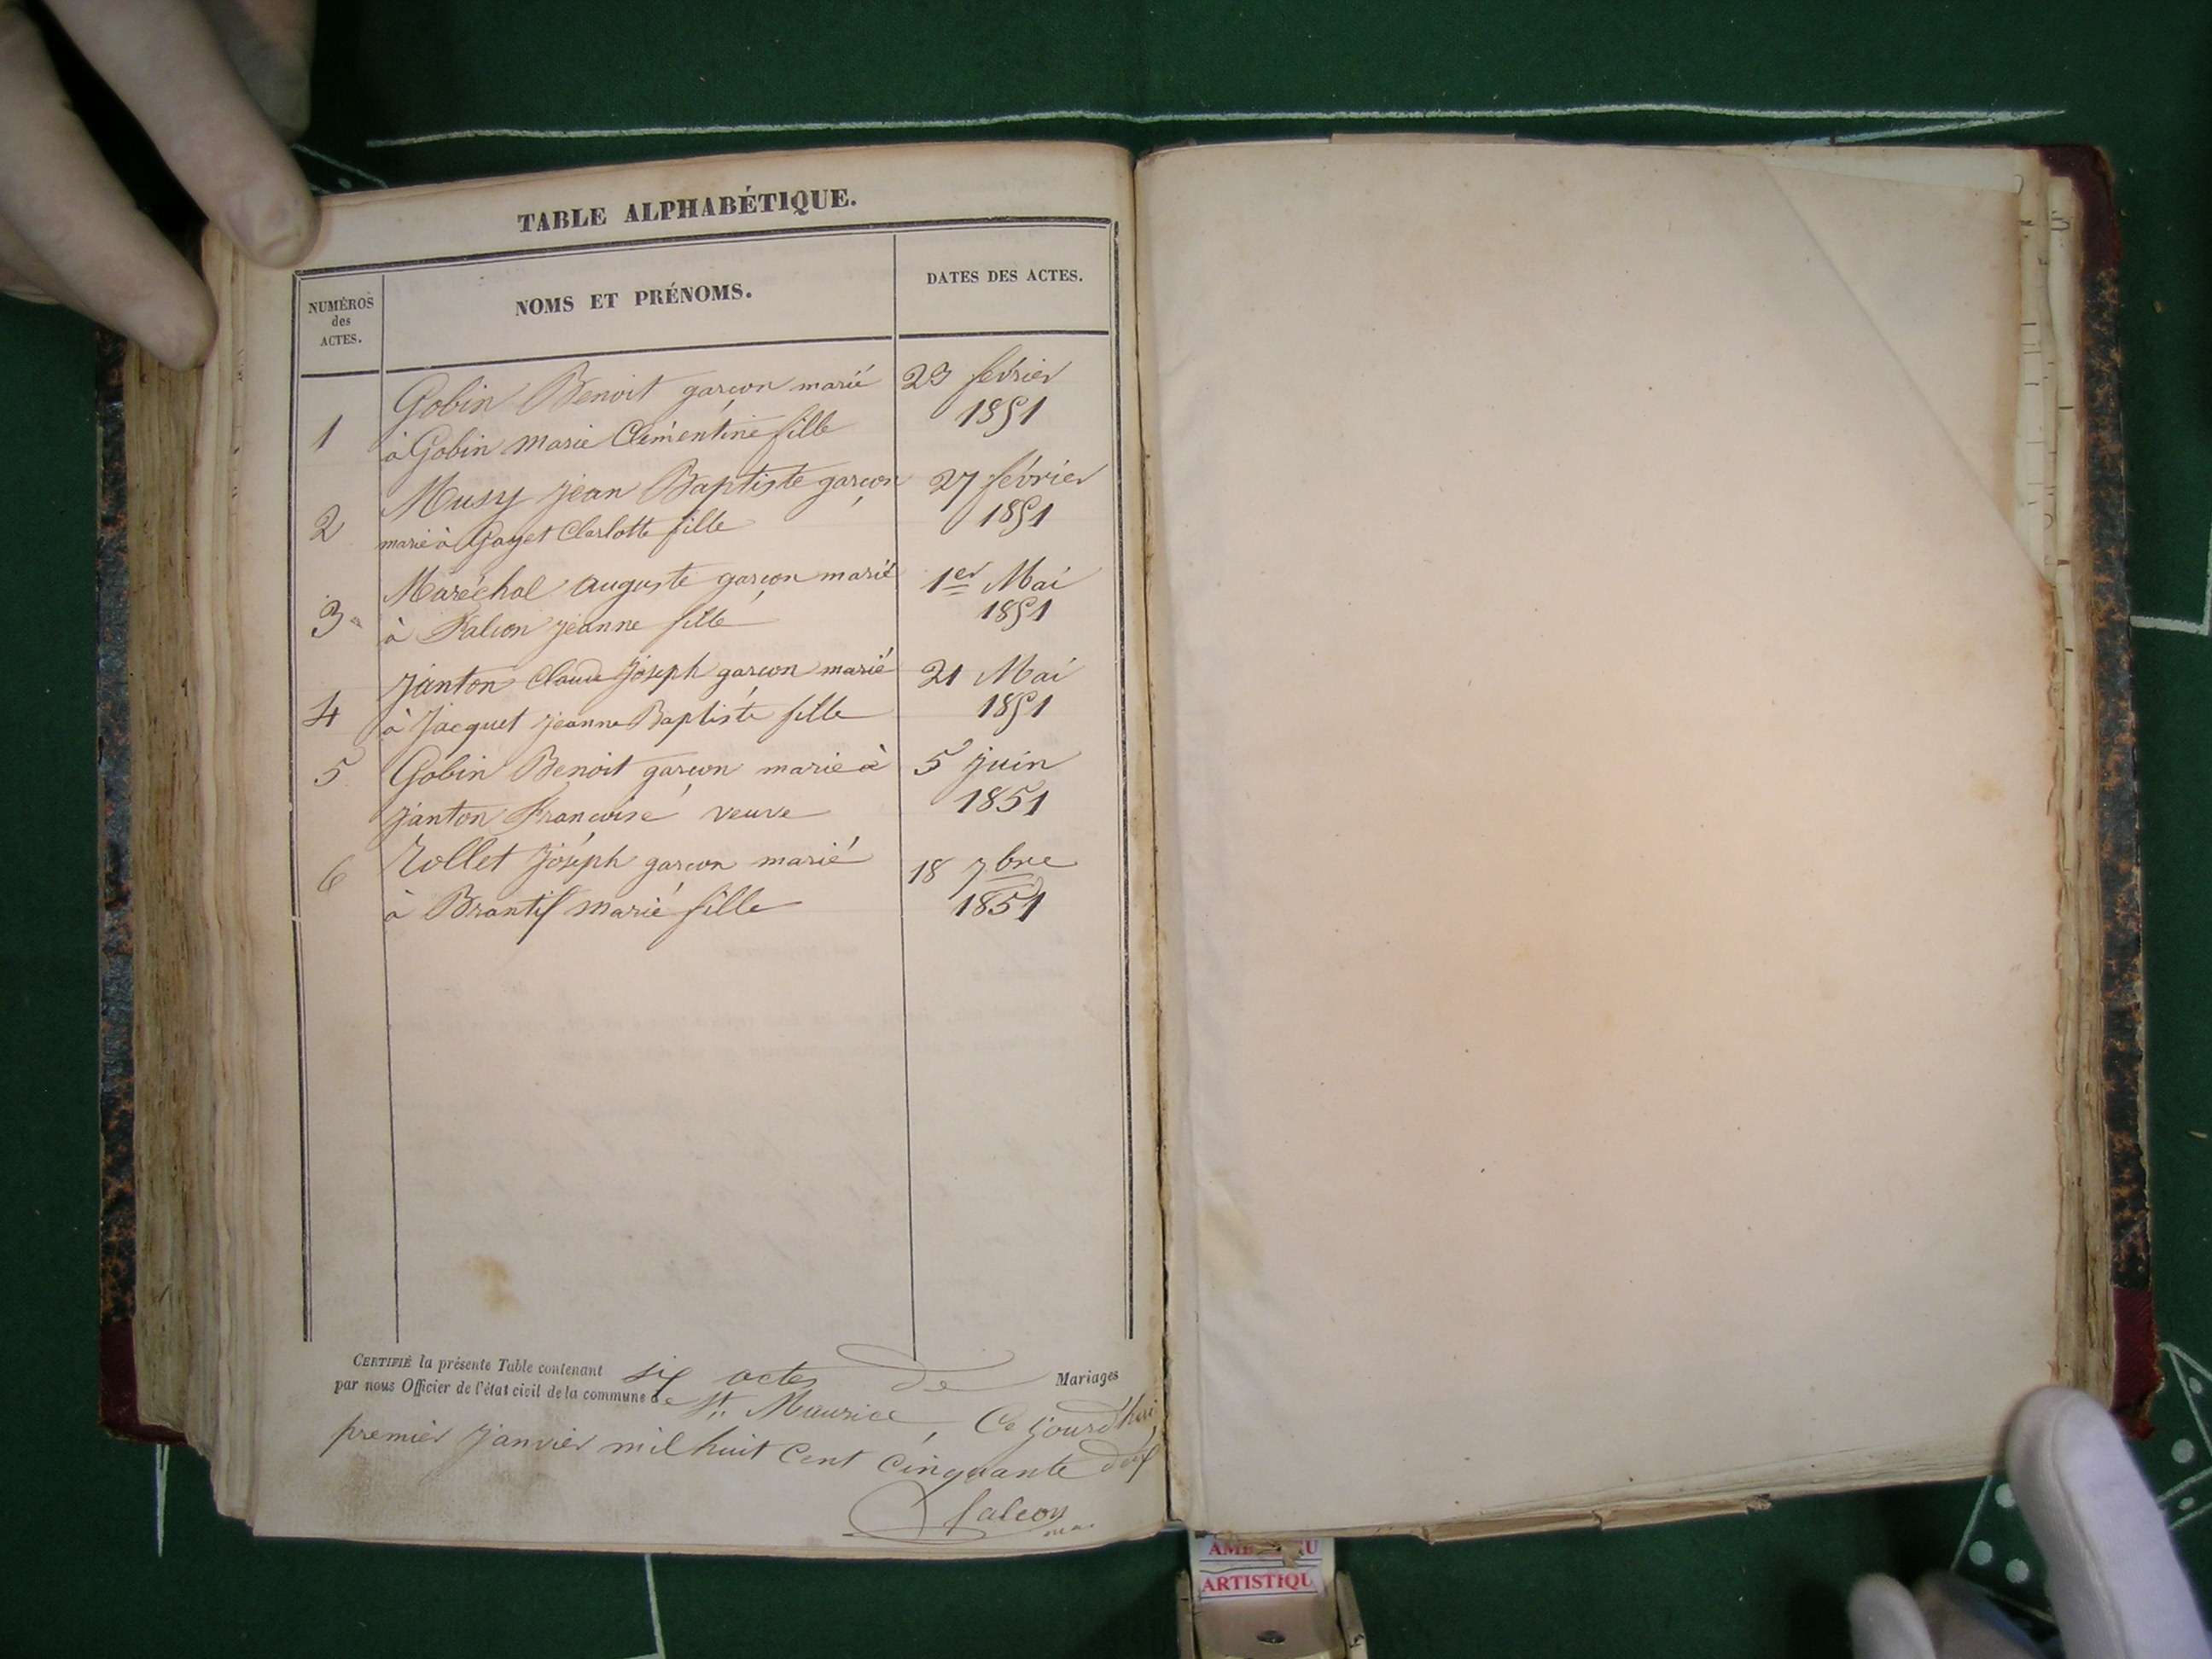 TABLE ALPHABÉTIQUE.
NUMÉROS
des
ACTES.
NOMS ET PRÉNOMS.
DATES DES ACTES.
Gobin Benoit garçon marié 23 février
1 à Gobin Marie Clémentine fille 1851
Musy Jean Baptiste garçon 27 février
2 marié à Gayet Clarlotte fille 1851
Maréchal Auguste garçon marié 1er Mai
3 à Falcon Jeanne fille 1851
Janton Claude Joseph garçon marié 21 Mai
4 à Jacquet Jeanne Baptiste fille 1851
5 Gobin Benoit garçon marié à 5 Juin
Janton Françoise veuve 1851
Rollet Joseph garçon marié 18 7bre
6 à Brantif Marie fille 1851
CERTIFIÉ la présente Table contenant six actes de Mariages
par nous Officier de l'état civil de la commune de St. Maurice, Ce jourd'hui
premier Janvier mil huit Cent Cinquante deux
falcon
ARTISTIQU